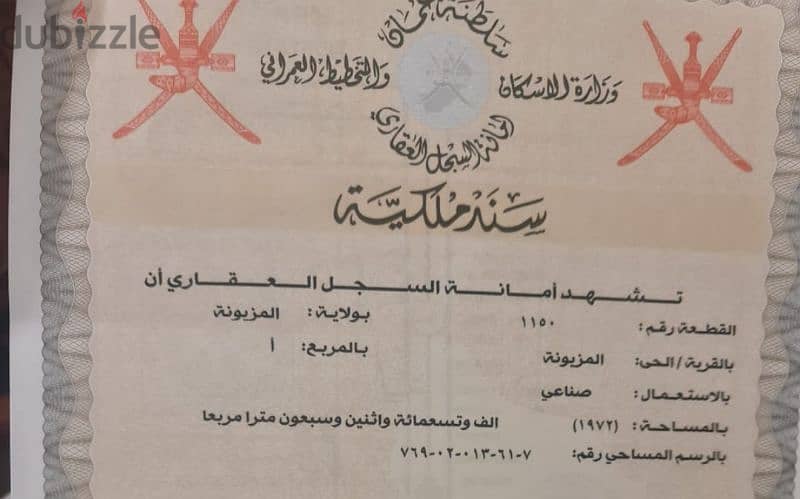 dubizzle
سلطنة عمان
وزارة الاسكان والتخطيط العمراني
أمانة السجل العقاري
سند ملكية
تشهد أمانة السجل العقاري أن
القطعة رقم: ١١٥٠ بولاية: المزيونة
بالقرية/الحى: المزيونة بالمربع: أ
بالاستعمال: صناعي
بالمساحة: (١٩٧٢) الف وتسعمائة واثنين وسبعون مترا مربعا
بالرسم المساحي رقم: ٧-٦١-٠١٣-٠٢-٧٦٩